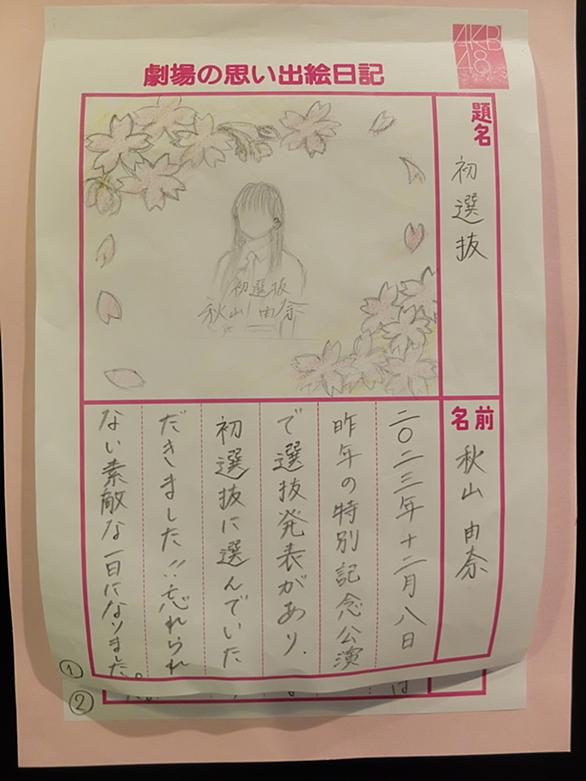 AKB
48
劇場の思い出絵日記
題名
初選抜
初選抜
秋山 由奈
名前
秋山 由奈
二〇二三年十二月八日
昨年の特別記念公演
で選抜発表があり、
初選抜に選んでいた
だきました!!忘れられ
ない素敵な一日になりました。
①
②
は